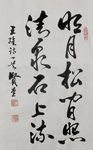 明月松间照
清泉石上流
王维诗一首 贤堂